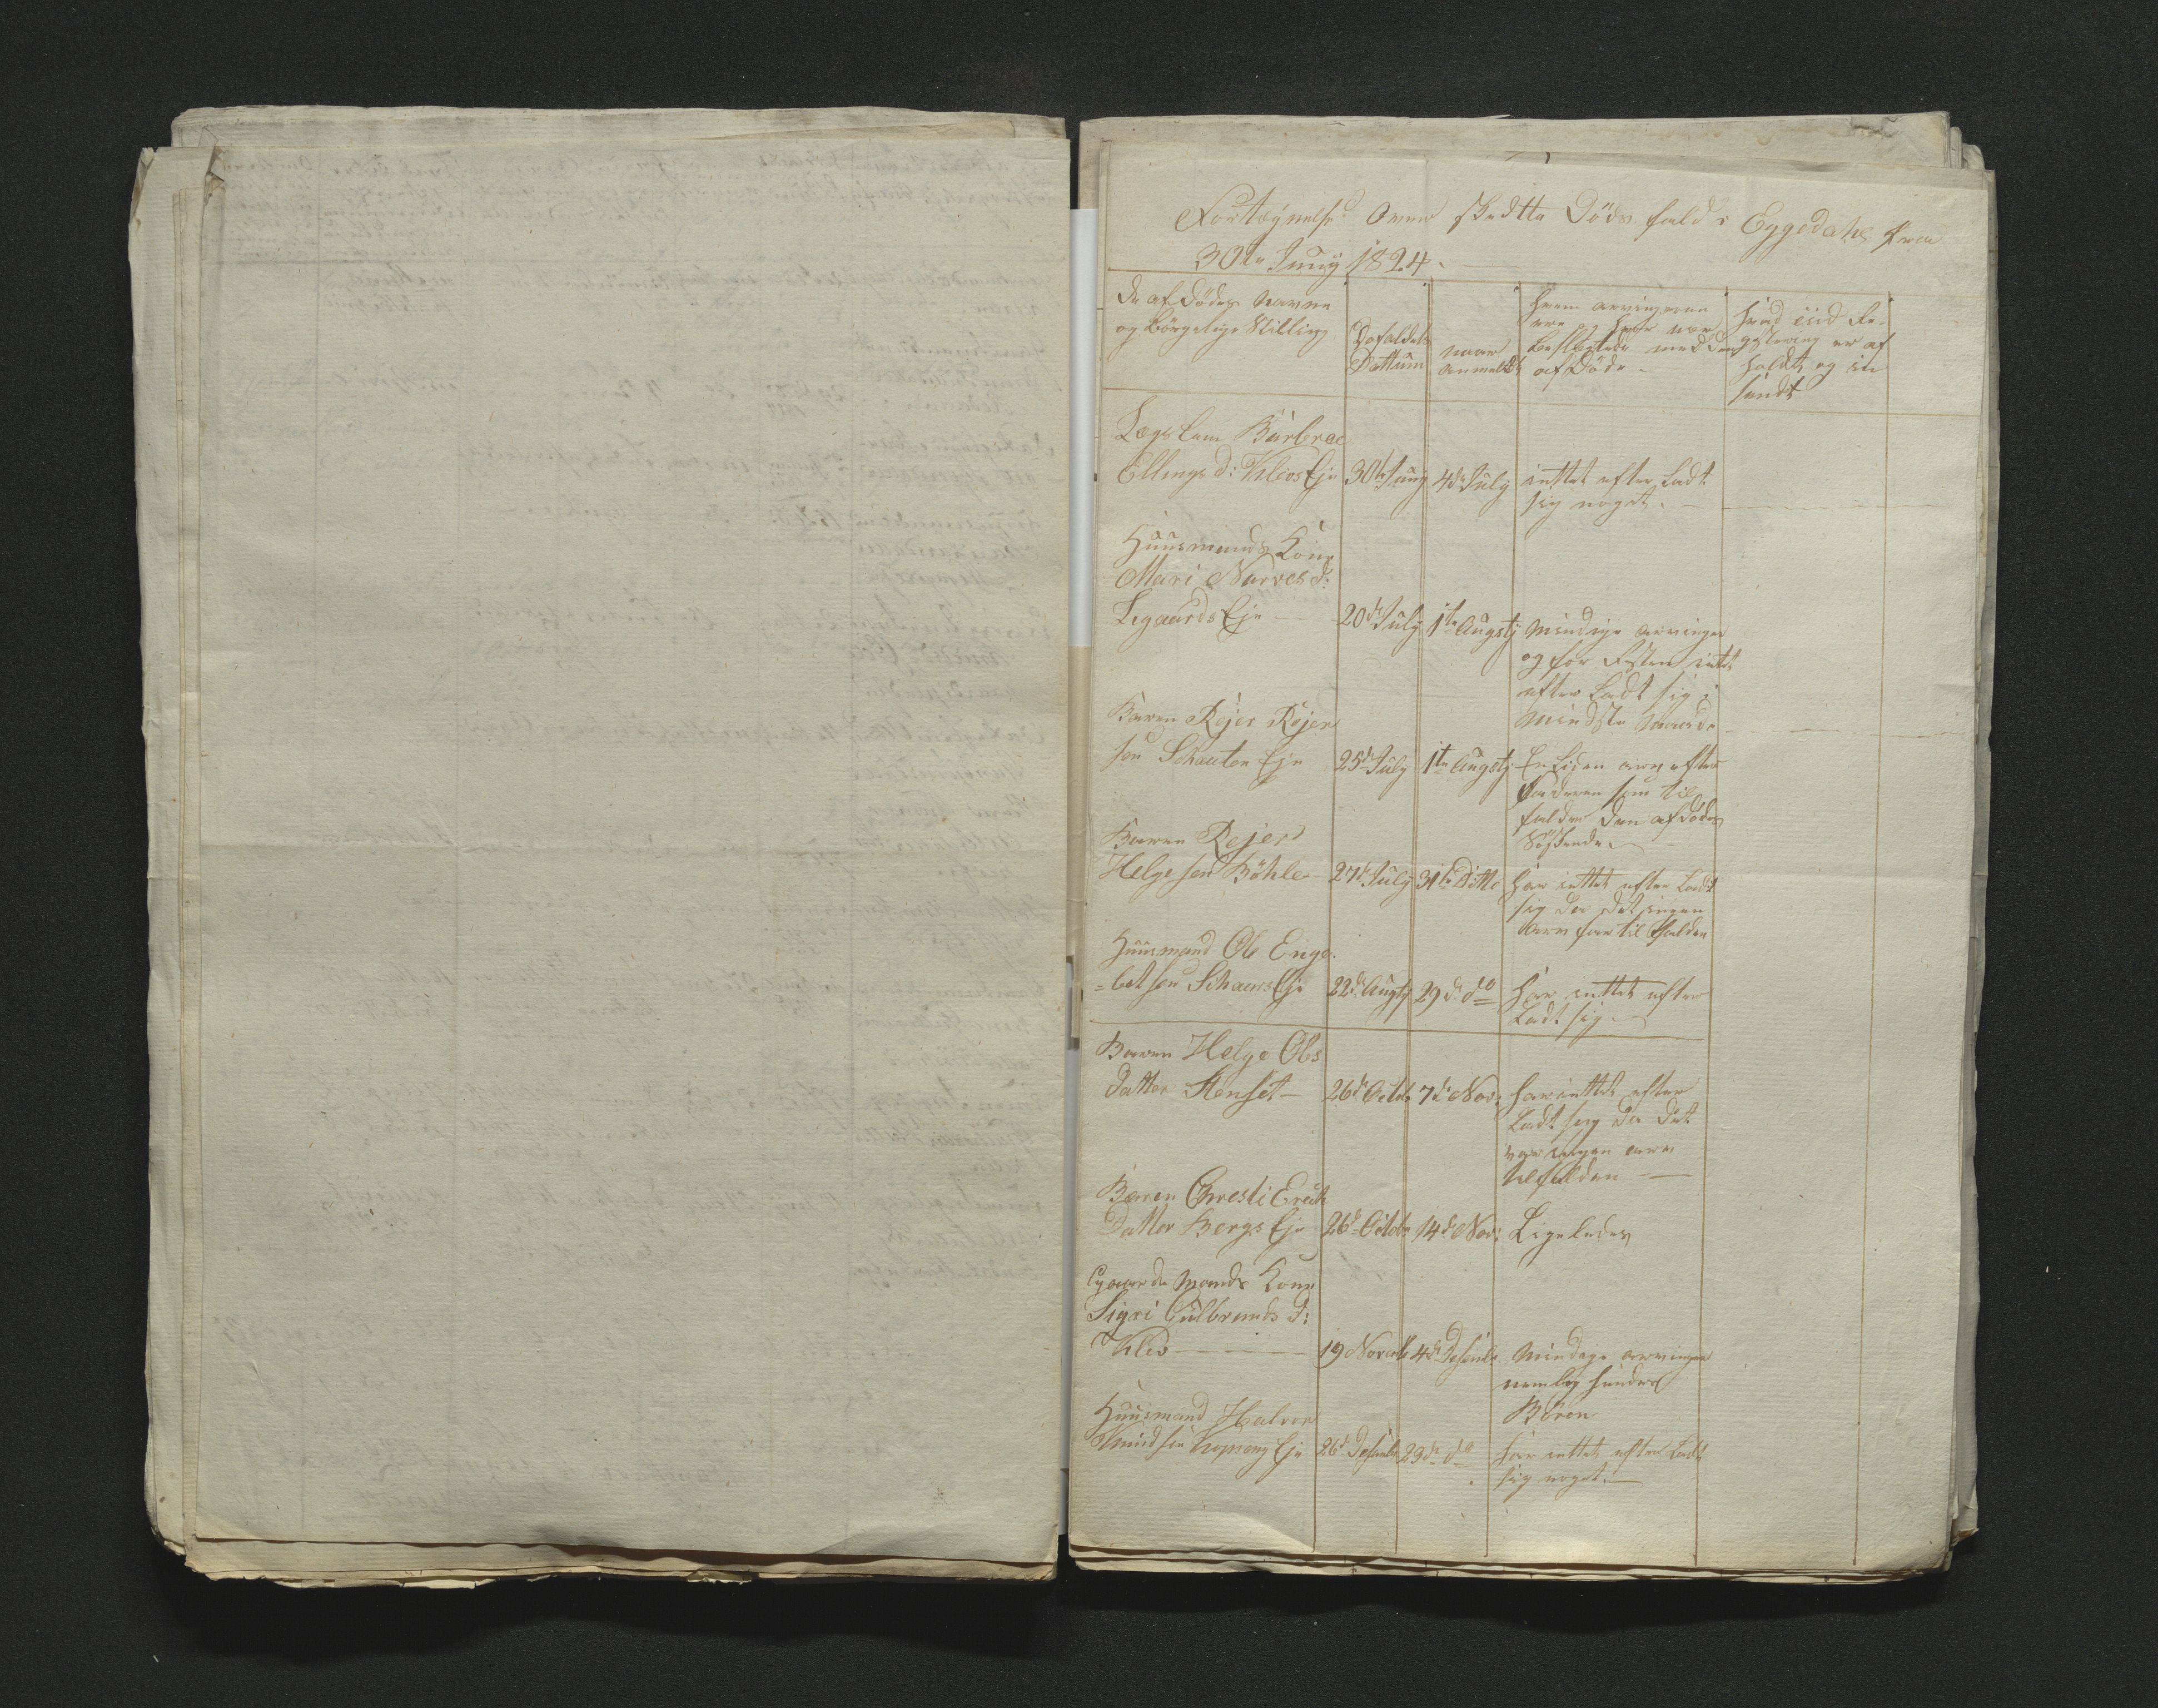 Fortægnelse Over skedte Døds fald i Eggedahl fra
30te Juny 1824.
De af Dødes Navne
og Borgelige Stilling
Dødsfaldets
Dattum
naar
anmeldt
Hvem arvingerne
ere, hvor nær
beslegtede med den
af Døde
Hvad iid Re-
gistering er af
holdt, og ind
sendt
Lægs Lem Barbroe
Ellings d: Klevs Eje
30te Juny
4de July
inttet efter Ladt
sig noget.
Huusmands Kone
Mari Narves d:
Ligaards Eje
20de July
1te Augsty
Mindige arvinger
og for Resten intet
efter Ladt sig i
Mindste Maade
Barnn Rejer Rejer
sen Schauten Eje
25de July
1te Augsty
En Liden arv efter
Faderen som til
falder den afdødes
Søskende.
Barnn Rejer
Helge sen Bøhle
27de July
31te Ditto
har inttet efter Ladt
sig da det ingen
Arv har til falden
Huusmand Ole Enge
=bret sen Schauns Eje
22de Augsty
29de do
Har inttet efter
Ladt sig
Barnn Helge Ols
Datter Stenset
26de Octob
7de Nov:
har inttet efter
Ladt sig da det
var ingen arv
tilfalden
Barnn Christi Erich
Datter Bergs Eje
26de Octobr
14de Nov:
Ligeledes
Gaarde Mands Kone
Sigri Gulbrands d:
Klev
19 Novemb
4de Desemb
Mindige arvinger
nemlig hendes
Børen
Huusmand Halvor
Knud sen Eje
26de Desemb
29de do
har inttet efter Ladt
sig noget.